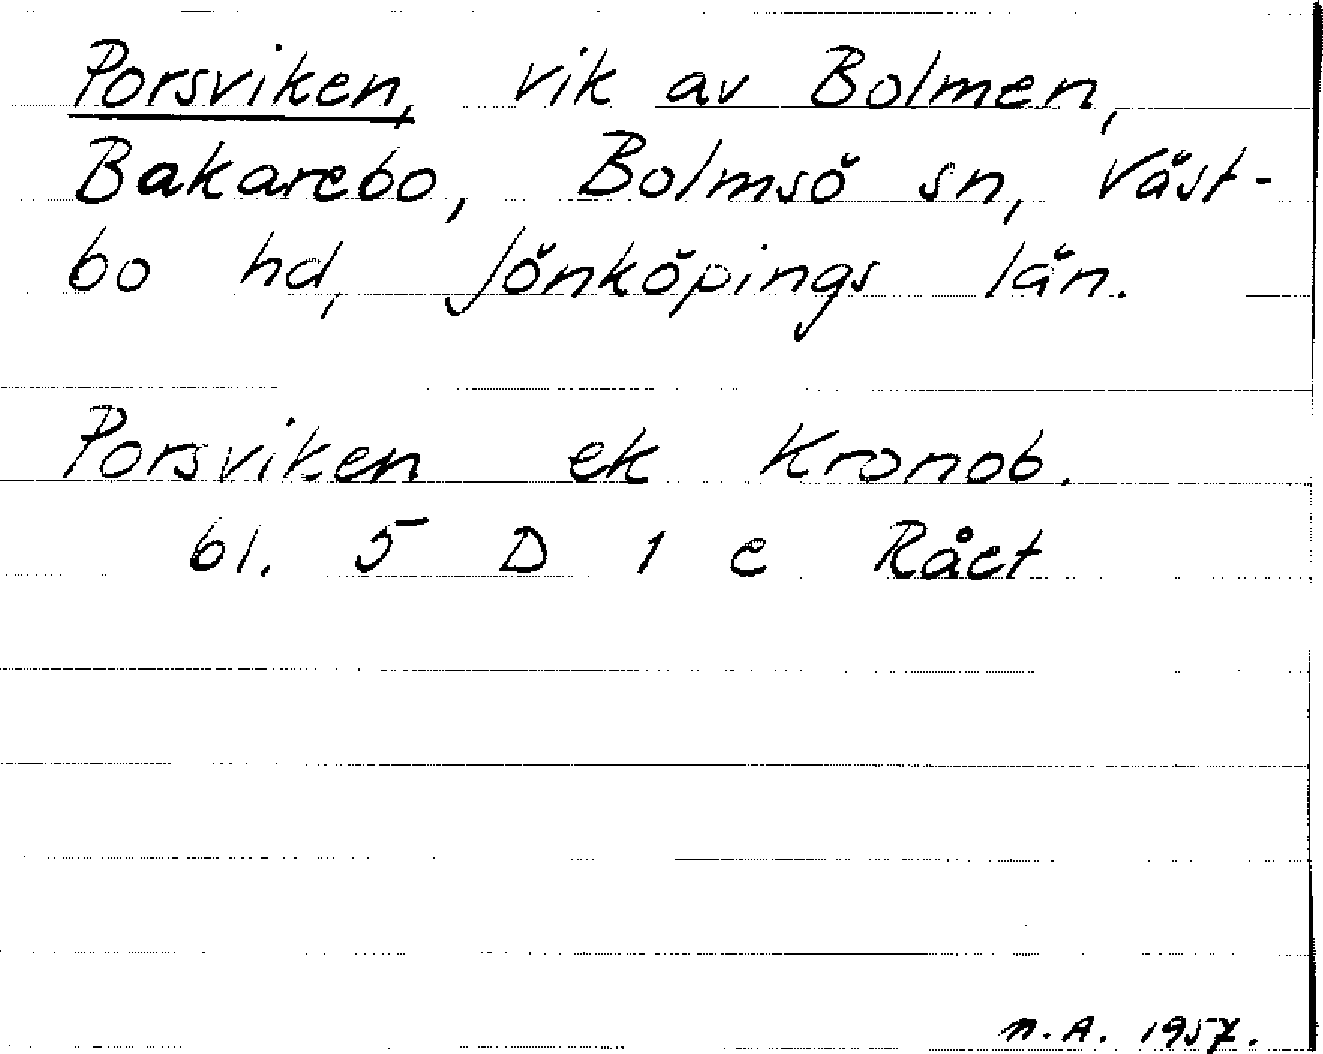 Porsviken, vik av Bolmen,
Bakarebo, Bolmsö sn, Väst-
bo hd, Jönköpings län.
Porsviken ek Kronob.
bl. 5 D 1 c Råct
n.A. 1957.